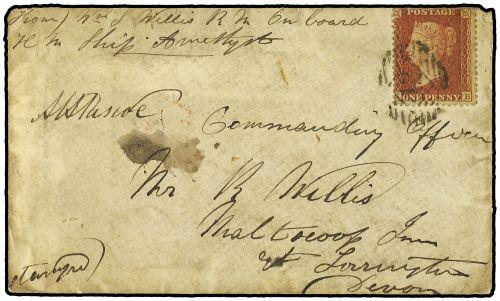 From Wm J Willis R M On board
H M Ship Amethyst
POSTAGE
ONE PENNY
Commanding Officer
Mr R Willis
Inn
Torrington
Devon